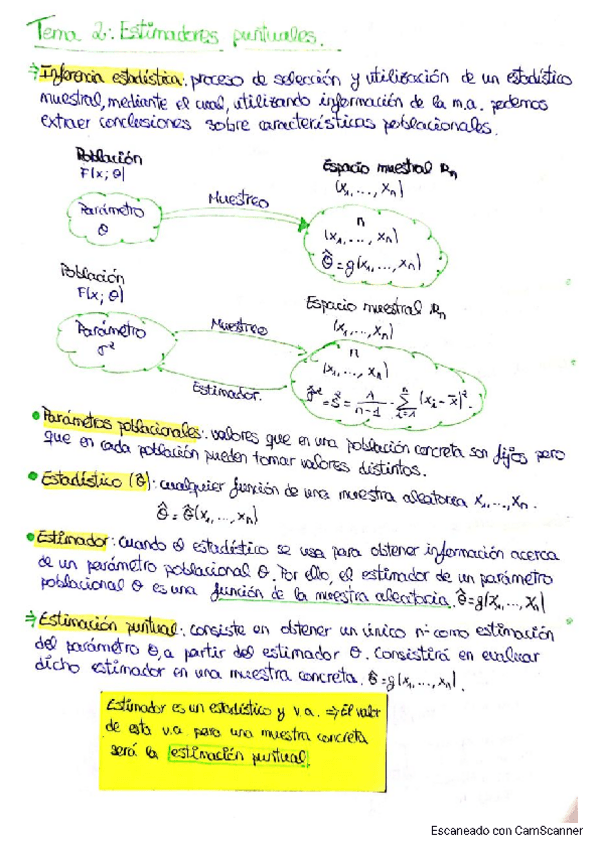 Tema 2: Estimadores puntuales.
⇒ Inferencia estadística: proceso de selección y utilización de un estadístico
muestral, mediante el cual, utilizando información de la m.a. podemos
extraer conclusiones sobre características poblacionales.
Población
F(x; θ)
Parámetro
θ
Muestreo
Espacio muestral Rn
(x₁, ..., xn)
n
(x₁, ..., xn)
θ̂ = g(x₁, ..., xn)
Población
F(x; θ)
Parámetro
σ²
Muestreo
Estimador.
Espacio muestral Rn
(x₁, ..., xn)
n
(x₁, ..., xn)
σ̂² = s² = 1/(n-1) · Σⁿᵢ₌₁ (xᵢ - x̄)².
• Parámetros poblacionales: valores que en una población concreta son fijos pero
que en cada población pueden tomar valores distintos.
• Estadístico (θ̂): cualquier función de una muestra aleatoria x₁, ..., xn.
θ̂ = θ̂(x₁, ..., xn)
• Estimador: cuando el estadístico se usa para obtener información acerca
de un parámetro poblacional θ. Por ello, el estimador de un parámetro
poblacional θ es una función de la muestra aleatoria. θ̂ = g(x₁, ..., xn)
⇒ Estimación puntual: consiste en obtener un único nº como estimación
del parámetro θ, a partir del estimador θ. Consistirá en evaluar
dicho estimador en una muestra concreta. θ̂ = g(x₁, ..., xn).
Estimador es un estadístico y v.a. ⇒ El valor
de esta v.a. para una muestra concreta
será la estimación puntual
Escaneado con CamScanner